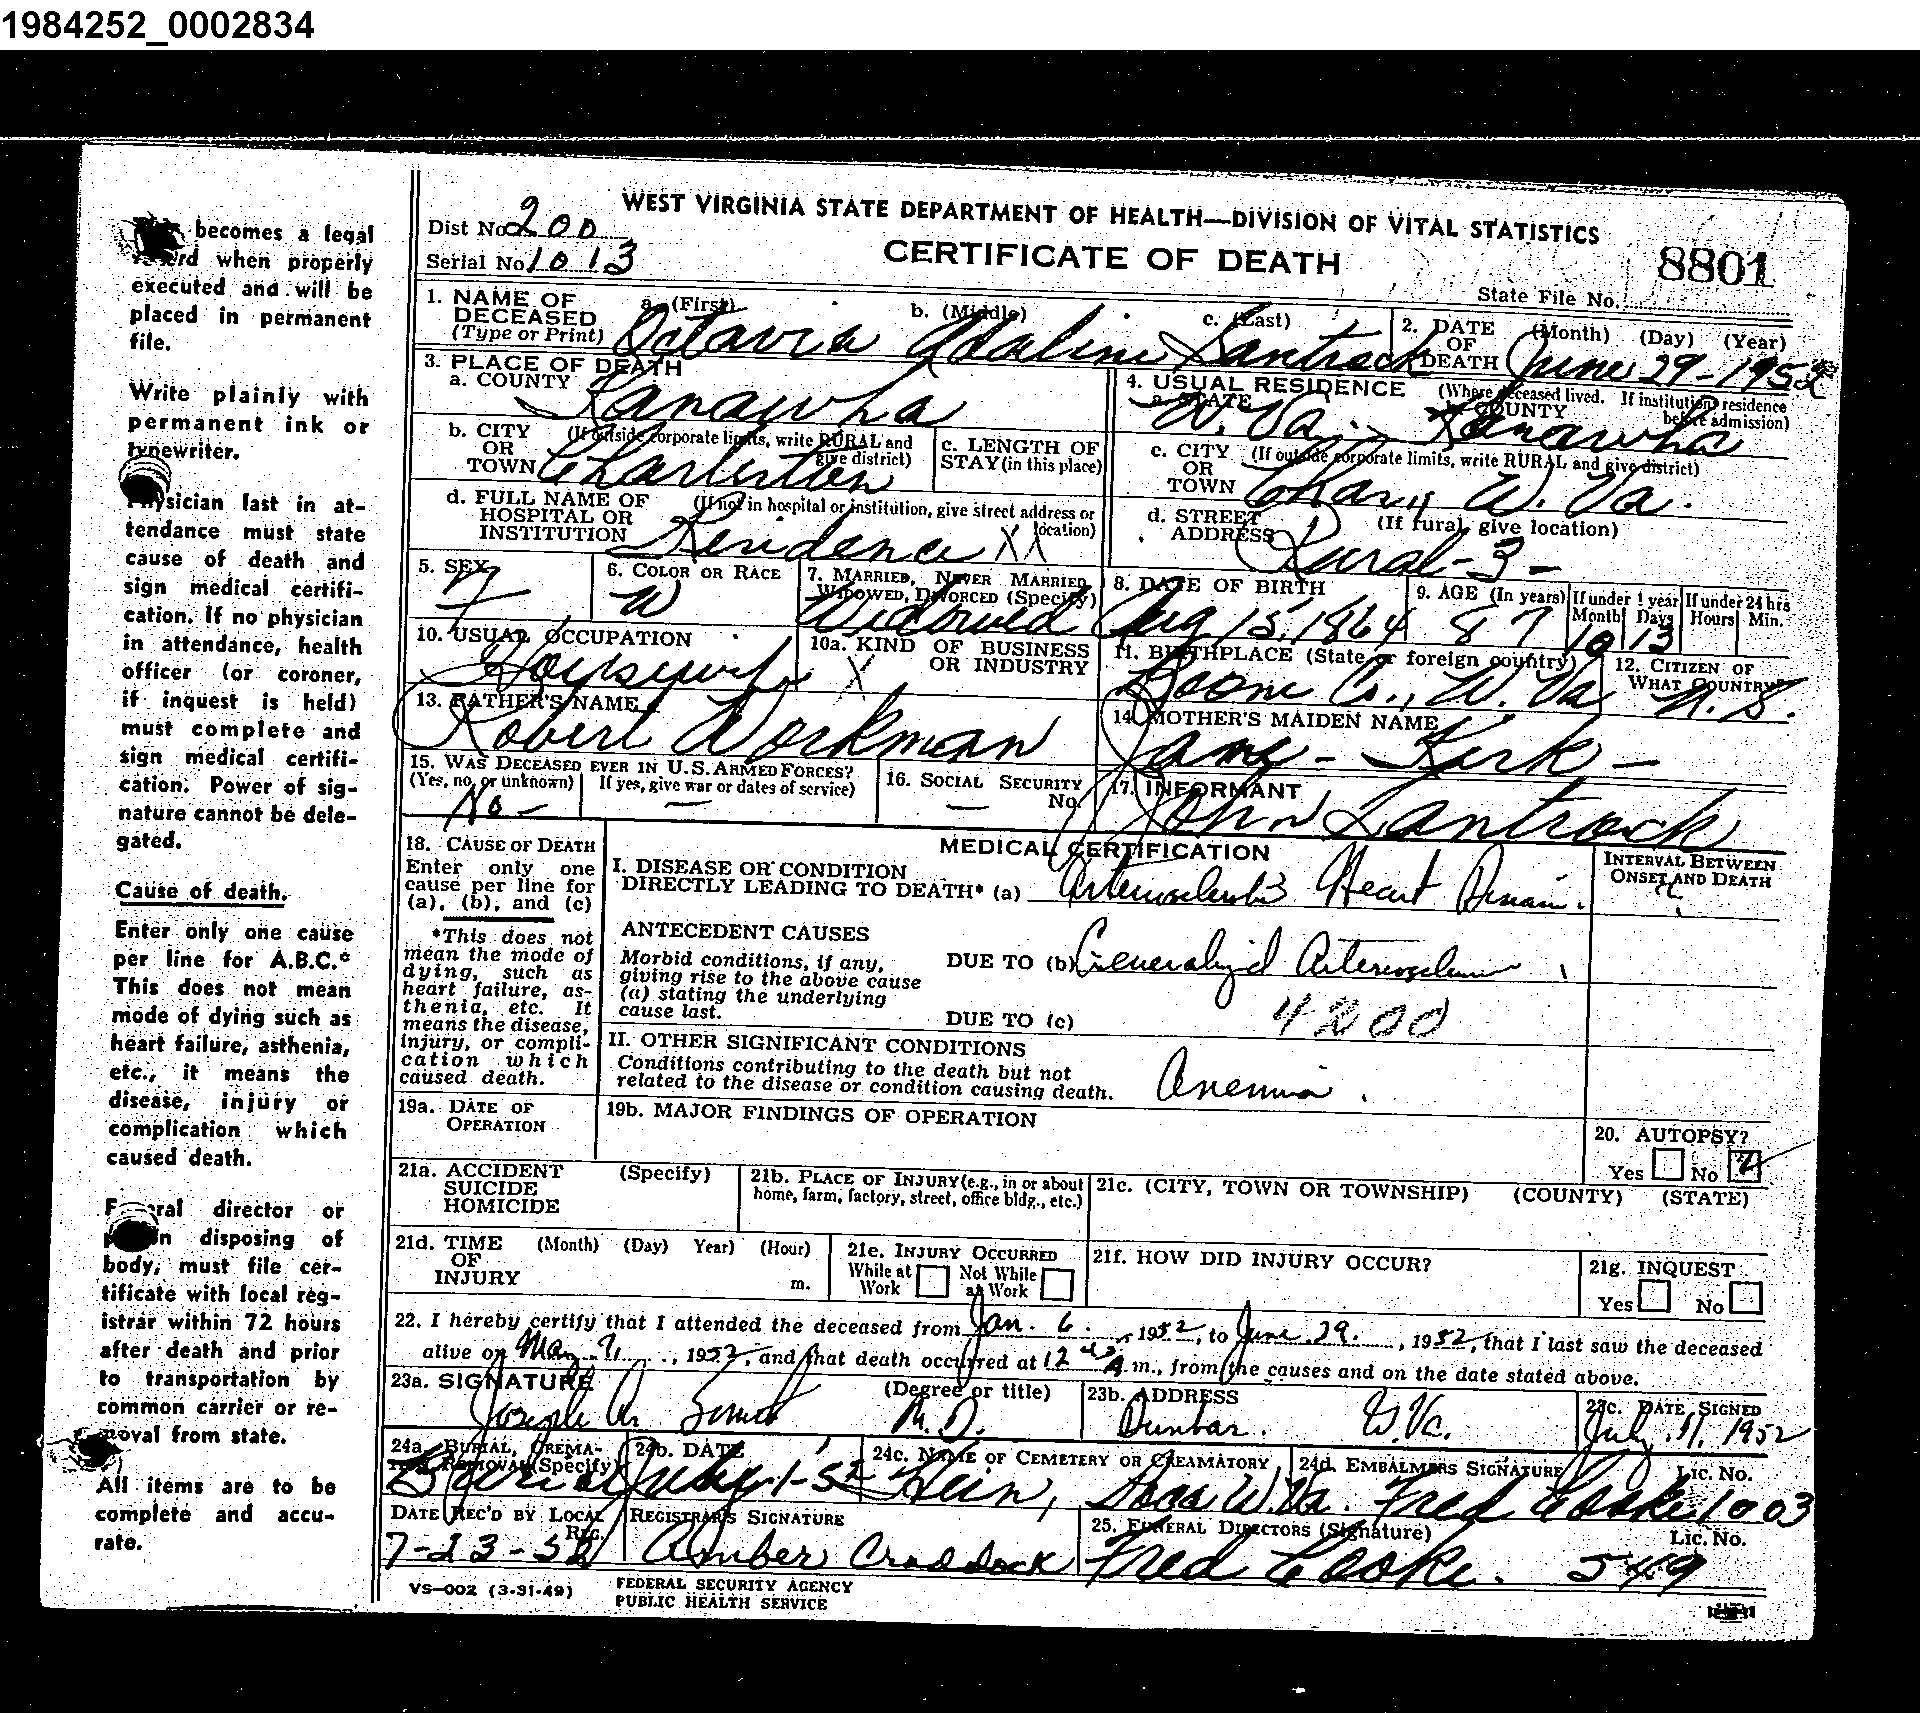 1984252_0002834
becomes a legal
record when properly
executed and will be
placed in permanent
file.
Write plainly with
permanent ink or
typewriter.
Physician last in at-
tendance must state
cause of death and
sign medical certifi-
cation. If no physician
in attendance, health
officer (or coroner,
if inquest is held)
must complete and
sign medical certifi-
cation. Power of sig-
nature cannot be dele-
gated.
Cause of death.
Enter only one cause
per line for A.B.C.*
This does not mean
mode of dying such as
heart failure, asthenia,
etc., it means the
disease, injury or
complication which
caused death.
Funeral director or
person disposing of
body, must file cer-
tificate with local reg-
istrar within 72 hours
after death and prior
to transportation by
common carrier or re-
moval from state.
All items are to be
complete and accu-
rate.
WEST VIRGINIA STATE DEPARTMENT OF HEALTH—DIVISION OF VITAL STATISTICS
Dist No. 200
Serial No. 1013
CERTIFICATE OF DEATH
8801
State File No.
1. NAME OF DECEASED (Type or Print) a. (First) b. (Middle) c. (Last)
Octavia Adaline Lantrock
2. DATE OF DEATH (Month) (Day) (Year)
June 29-1952
3. PLACE OF DEATH
a. COUNTY Kanawha
4. USUAL RESIDENCE (Where deceased lived. If institution: residence before admission)
a. STATE W. Va. b. COUNTY Kanawha
b. CITY OR TOWN (If outside corporate limits, write RURAL and give district)
Charleston
c. LENGTH OF STAY (in this place)
c. CITY OR TOWN (If outside corporate limits, write RURAL and give district)
Chas., W. Va.
d. FULL NAME OF HOSPITAL OR INSTITUTION (If not in hospital or institution, give street address or location)
Residence XX
d. STREET ADDRESS (If rural, give location)
Rural-3-
5. SEX F
6. COLOR OR RACE W
7. MARRIED, NEVER MARRIED, WIDOWED, DIVORCED (Specify) Widowed
8. DATE OF BIRTH Aug 15, 1864
9. AGE (In years) 87
If under 1 year Month 10 Days 13
If under 24 hrs Hours Min.
10. USUAL OCCUPATION Housewife
10a. KIND OF BUSINESS OR INDUSTRY X
11. BIRTHPLACE (State or foreign country) Boone Co., W. Va
12. CITIZEN OF WHAT COUNTRY? U.S.
13. FATHER'S NAME Robert Workman
14. MOTHER'S MAIDEN NAME Jane - Kirk -
15. WAS DECEASED EVER IN U.S. ARMED FORCES?
(Yes, no, or unknown) If yes, give war or dates of service)
No - —
16. SOCIAL SECURITY No. —
17. INFORMANT John Lantrock
18. CAUSE OF DEATH
Enter only one cause per line for (a), (b), and (c)
*This does not mean the mode of dying, such as heart failure, asthenia, etc. It means the disease, injury, or complication which caused death.
MEDICAL CERTIFICATION
INTERVAL BETWEEN ONSET AND DEATH
I. DISEASE OR CONDITION DIRECTLY LEADING TO DEATH* (a) Arteriosclerotic Heart Disease.
?
ANTECEDENT CAUSES
Morbid conditions, if any, giving rise to the above cause (a) stating the underlying cause last.
DUE TO (b) Generalized Arteriosclerosis
DUE TO (c) 4200
II. OTHER SIGNIFICANT CONDITIONS
Conditions contributing to the death but not related to the disease or condition causing death. Anemia.
19a. DATE OF OPERATION
19b. MAJOR FINDINGS OF OPERATION
20. AUTOPSY?
Yes No
21a. ACCIDENT SUICIDE HOMICIDE (Specify)
21b. PLACE OF INJURY (e.g., in or about home, farm, factory, street, office bldg., etc.)
21c. (CITY, TOWN OR TOWNSHIP) (COUNTY) (STATE)
21d. TIME OF INJURY (Month) (Day) Year) (Hour) m.
21e. INJURY OCCURRED
While at Work Not While at Work
21f. HOW DID INJURY OCCUR?
21g. INQUEST
Yes No
22. I hereby certify that I attended the deceased from Jan. 6., 1952, to June 29., 1952, that I last saw the deceased
alive on May 9, 1952, and that death occurred at 12 A.m., from the causes and on the date stated above.
23a. SIGNATURE (Degree or title)
Joseph A. M.D.
23b. ADDRESS Dunbar. W.Va.
23c. DATE SIGNED July 11, 1952
24a. BURIAL, CREMATION, REMOVAL (Specify) Burial
24b. DATE July 1-52
24c. NAME OF CEMETERY OR CREAMATORY
24d. EMBALMERS SIGNATURE Lic. No.
Hein, W.Va. Fred Cooke 1003
DATE REC'D BY LOCAL REG. 7-23-52
REGISTRAR'S SIGNATURE Amber Craddock
25. FUNERAL DIRECTORS (Signature) Lic. No.
Fred Cooke. 549
VS-002 (3-31-49)
FEDERAL SECURITY AGENCY
PUBLIC HEALTH SERVICE